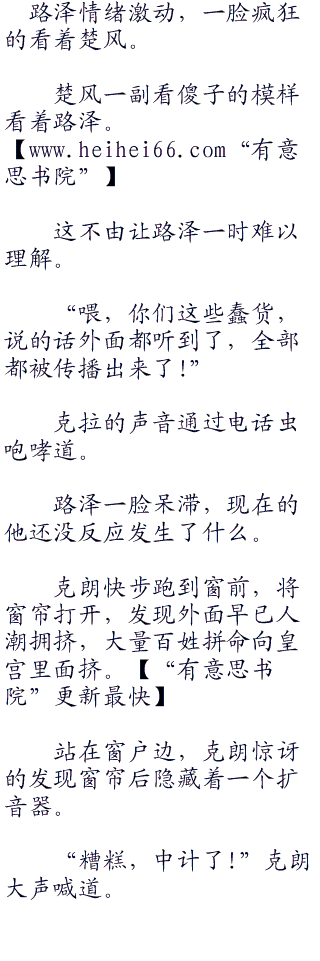 路泽情绪激动，一脸疯狂
的看着楚风。
楚风一副看傻子的模样
看着路泽。
【www.heihei66.com“有意
思书院”】
这不由让路泽一时难以
理解。
“喂，你们这些蠢货，
说的话外面都听到了，全部
都被传播出来了!”
克拉的声音通过电话虫
咆哮道。
路泽一脸呆滞，现在的
他还没反应发生了什么。
克朗快步跑到窗前，将
窗帘打开，发现外面早已人
潮拥挤，大量百姓拼命向皇
宫里面挤。【“有意思书
院”更新最快】
站在窗户边，克朗惊讶
的发现窗帘后隐藏着一个扩
音器。
“糟糕，中计了!”克朗
大声喊道。